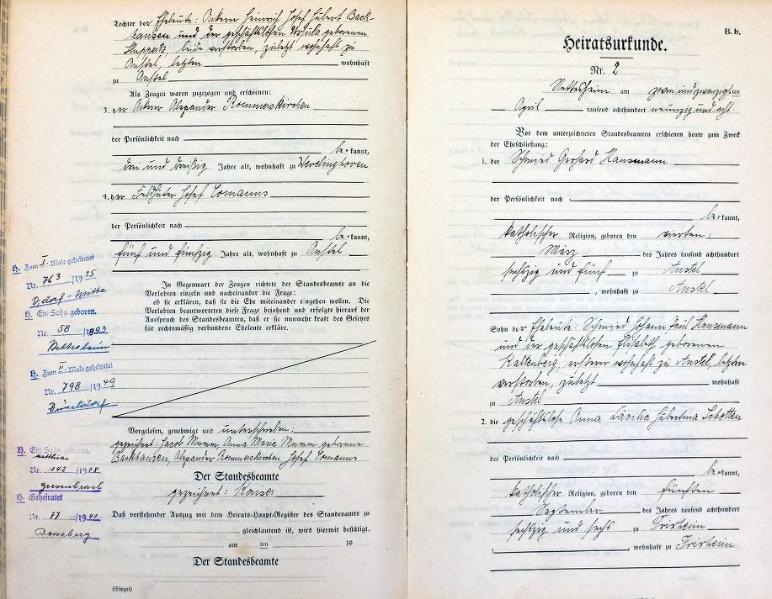 Tochter der Eheleute: Ackerer Heinrich Josef Hubert Back-
hausen und der geschäftslosen Ursula geborenen
beide verstorben, zuletzt wohnhaft zu
Anstel, letzten wohnhaft
zu Anstel
Als Zeugen waren zugezogen und erschienen:
3. der Ackerer Alexander Rommerskirchen
der Persönlichkeit nach
be kannt,
drei und dreißig Jahre alt, wohnhaft zu Wevelinghoven
4. der Feldhüter Josef Comanns
der Persönlichkeit nach
be kannt,
fünf und fünfzig Jahre alt, wohnhaft zu Anstel
In Gegenwart der Zeugen richtete der Standesbeamte an
die Verlobten einzeln und nacheinander die Frage:
ob sie erklären, daß sie die Ehe miteinander eingehen wollen. Die
Verlobten beantworteten diese Frage bejahend und erfolgte hierauf der
Ausspruch des Standesbeamten, daß er sie nunmehr kraft des Gesetzes
für rechtmäßig verbundene Eheleute erkläre.
Vorgelesen, genehmigt und unterschrieben:
gezeichnet Jacob Mumm Anna Maria Mumm geborene
Backhausen, Alexander Rommerskirchen Josef Comanns
Der Standesbeamte
gezeichnet:
Daß vorstehender Auszug mit dem Heirats-Haupt-Register des Standesamts zu
gleichlautend ist, wird hiermit bestätigt.
am ten 19
Der Standesbeamte
(Siegel)
H. Zum I. Male geheiratet
Nr. 763 /1925
Ddorf-Mitte
H. Ein Sohn geboren.
Nr. 58 /1899
H. Zum II. Male geheiratet
Nr. 798 /1940
Düsseldorf
H. Ein Sohn geboren.
Nr. 142 /1908
Grevenbroich
H. Geheiratet
Nr. 77 /1941
Bensberg
B. b.
Heiratsurkunde.
Nr. 2
Nettesheim am zwei und zwanzigsten
April tausend achthundert neunzig und acht
Vor dem unterzeichneten Standesbeamten erschienen heute zum Zweck
der Eheschließung:
1. der Schmied Gerhard Hansmann
der Persönlichkeit nach
be kannt,
katholischer Religion, geboren den vierten
März des Jahres tausend achthundert
sechzig und fünf zu Anstel
, wohnhaft zu Anstel
Sohn der Eheleute: Schmied Johann Paul Hansmann
und der geschäftslosen Elisabeth geborenen
ersterer wohnhaft zu Anstel, letzten
verstorben, zuletzt wohnhaft
zu Anstel
2. die geschäftslose Anna Hubertina Schotten
der Persönlichkeit nach
be kannt,
katholischer Religion, geboren den fünften
September des Jahres tausend achthundert
sechzig und sechs zu Frixheim
, wohnhaft zu Frixheim